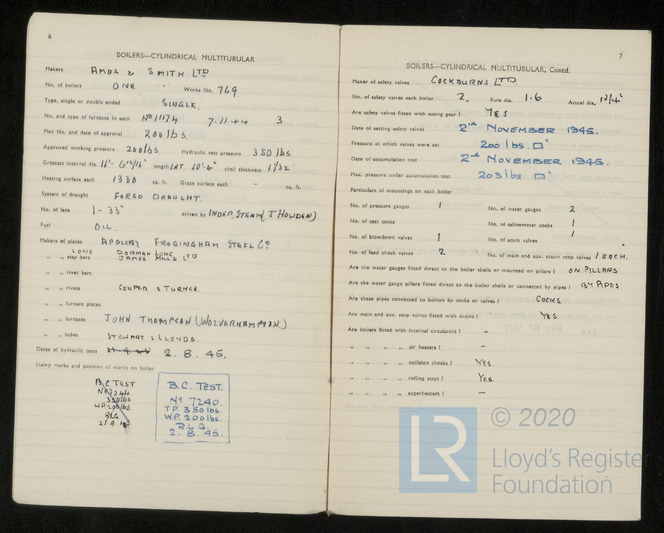 6
BOILERS—CYLINDRICAL MULTITUBULAR
Makers AMOS & SMITH LTD
No. of boilers ONE Works No. 769.
Type, single or double ended SINGLE.
No. and type of furnaces in each 3
Plan No. and date of approval 200 lbs.
Approved working pressure 200 lbs. Hydraulic test pressure 350 lbs.
Greatest internal dia. length INT. 10'-4" shell thickness 1 1/32"
Heating surface each 1330 sq. ft. Grate surface each – sq. ft.
System of draught FORCED DRAUGHT.
No. of fans 1 - 33" driven by INDEP. STEAM (J HOWDEN)
Fuel OIL.
Makers of plates APPLEBY FRODINGHAM STEEL Co
LONG DORMAN LONG
„ „ stay bars JAMES MILLS LTD
„ „ rivet bars
„ „ rivets COOPER & TURNER.
„ „ furnace plates
„ „ furnaces JOHN THOMPSON (WOLVERHAMPTON.)
„ „ tubes STEWART & LLOYDS.
Dates of hydraulic tests 2. 8. 45.
Stamp marks and position of marks on boiler
B.C TEST
No 7244
350 lbs
W.P. 200 lbs.
R.L.G.
21.9.45
B.C. TEST.
No 7240.
T.P. 350 lbs.
W.P. 200 lbs.
R.L.G.
2. 8. 45.
7
BOILERS—CYLINDRICAL MULTITUBULAR, Contd.
Maker of safety valves COCKBURNS LTD
No. of safety valves each boiler 2. Rule dia. 1.6 Actual dia.
Are safety valves fitted with easing gear? YES
Date of setting safety valves 2nd NOVEMBER 1945.
Pressure at which valves were set 200 lbs. □"
Date of accumulation test 2nd NOVEMBER 1945.
Max. pressure under accumulation test 203 lbs □"
Particulars of mountings on each boiler
No. of pressure gauges 1 No. of water gauges 2
No. of test cocks No. of salinometer cocks 1
No. of blowdown valves 1 No. of scum valves 1
No. of feed check valves 2 No. of main and aux. steam stop valves 1 EACH.
Are the water gauges fitted direct to the boiler shells or mounted on pillars? ON PILLARS
Are the water gauge pillars fitted direct to the boiler shells or connected by pipes? BY PIPES
Are these pipes connected to boilers by cocks or valves? COCKS.
Are main and aux. stop valves fitted with drains? YES.
Are boilers fitted with internal circulators? –
„ „ „ „ air heaters? –
„ „ „ „ collision chocks? YES.
„ „ „ „ rolling stays? YES.
„ „ „ „ superheaters? –
LR
© 2020
Lloyd's Register
Foundation